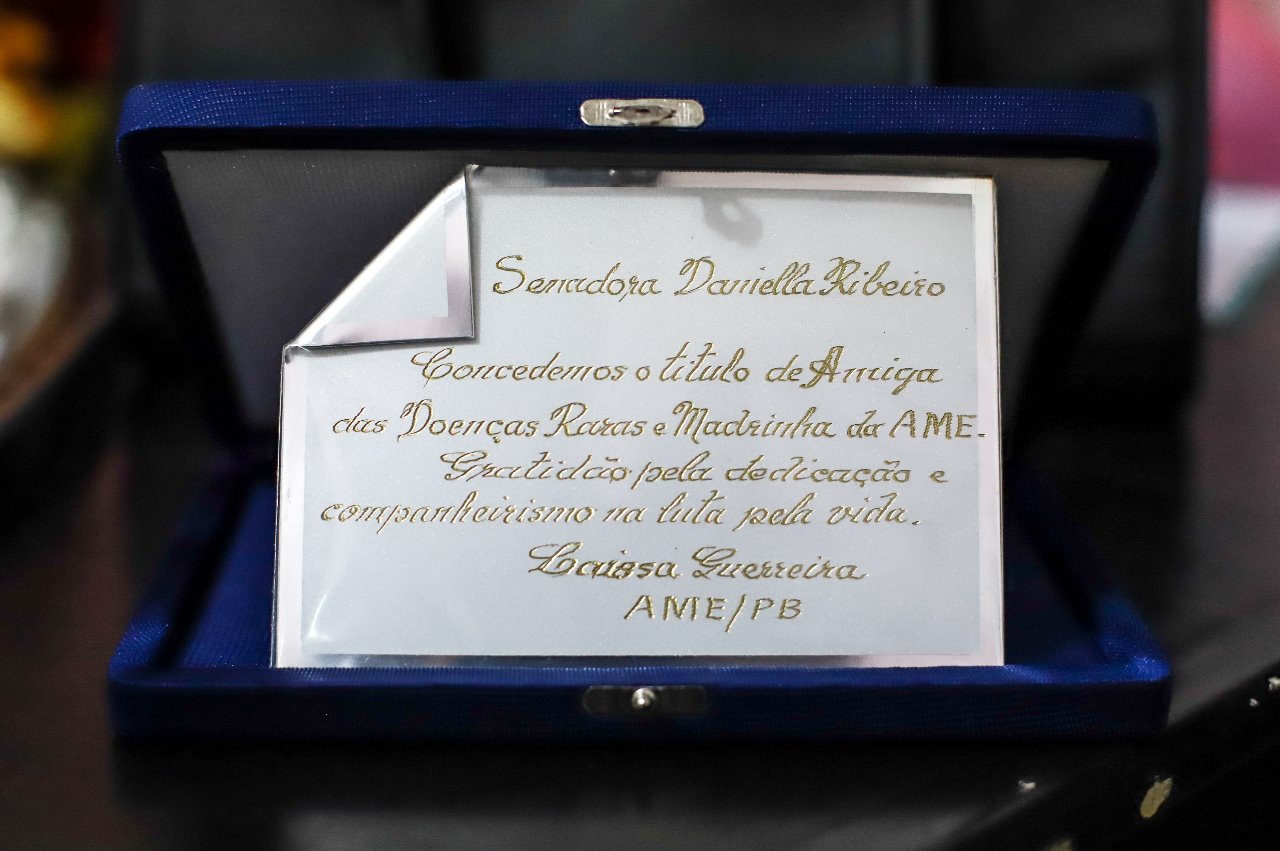 Senadora Daniella Ribeiro
Concedemos o titulo de Amiga
das Doenças Raras e Madrinha da AME.
Gratidão pela dedicação e
companheirismo na luta pela vida.
Larissa Guerreira
AME/PB